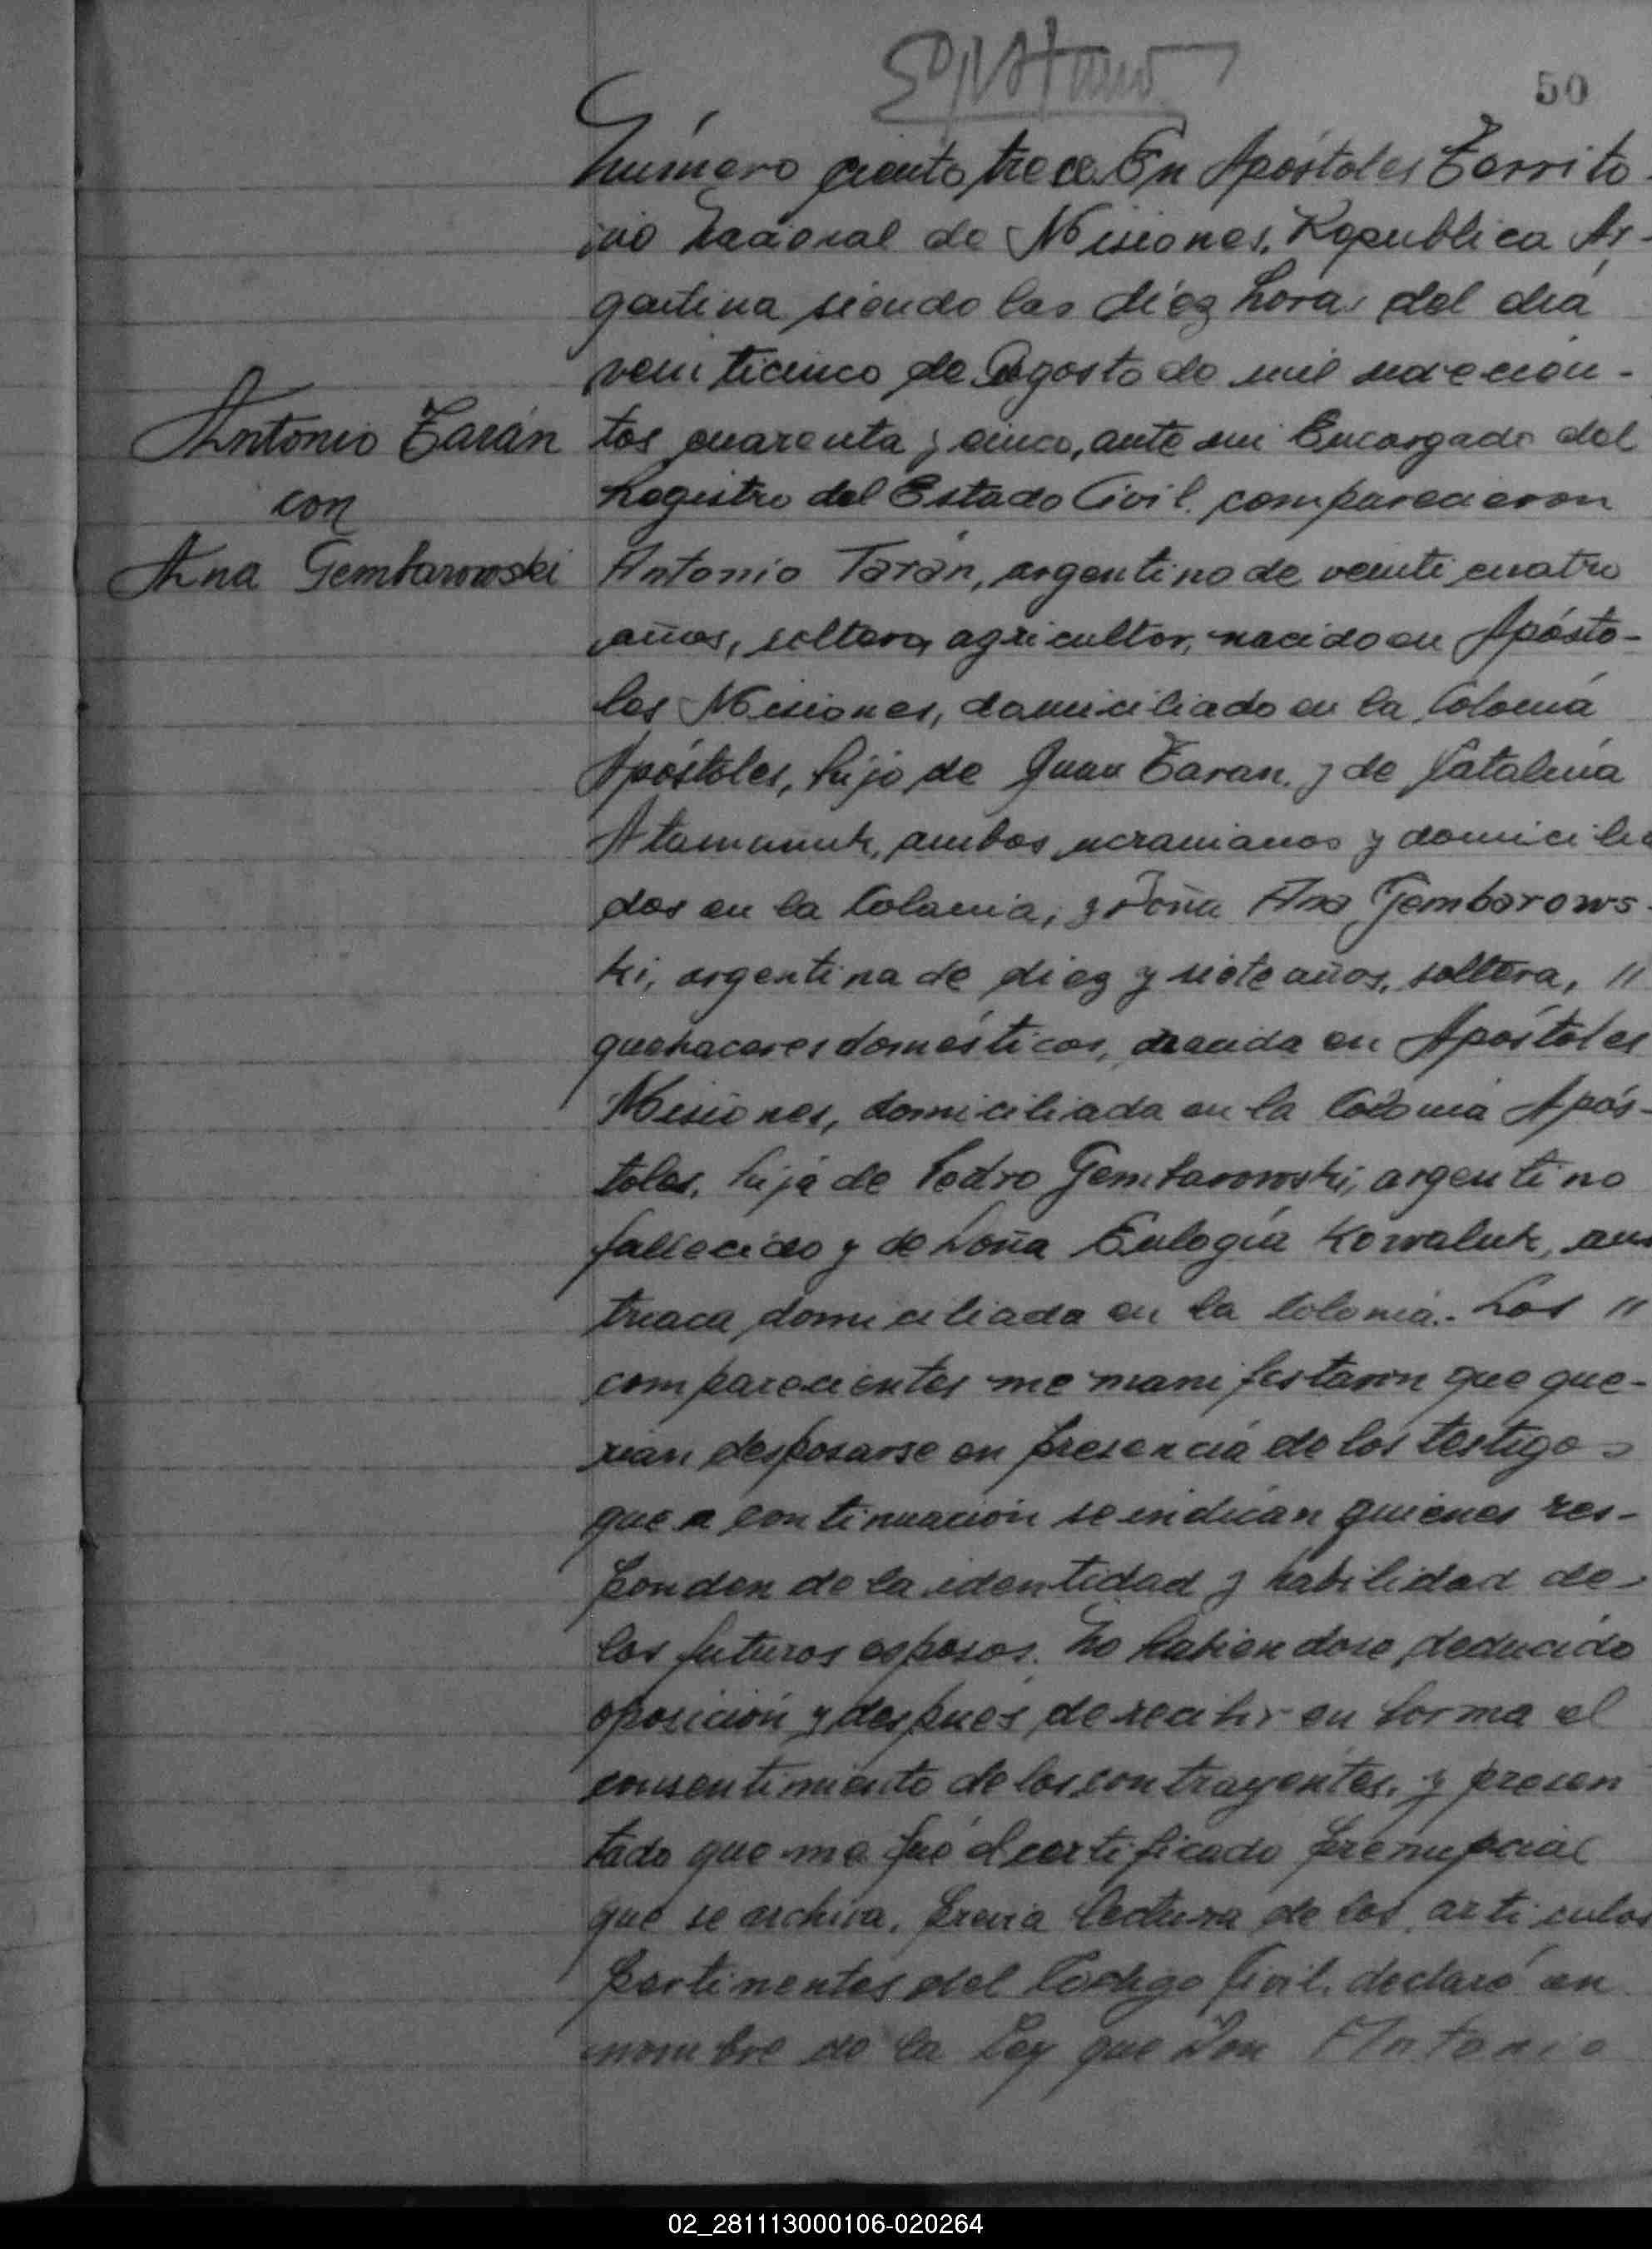 50
Número ciento trece. En Apóstoles Territo-
rio Nacional de Misiones, Republica Ar-
gentina siendo las diez horas del dia
veinticinco de Agosto de mil novecien-
Antonio Tarán
tos cuarenta y cinco, ante mi Encargado del
con
Registro del Estado Civil. comparecieron
Ana Gembarowski
Antonio Tarán, argentino de veinti cuatro
años, soltero, agricultor, nacido en Apósto-
les Misiones, domiciliado en la Colonia
Apóstoles, hijo de Juan Taran, y de Catalina
ambos ucranianos y domicilia
dos en la Colonia, y Doña Ana Gembarows-
ki, argentina de diez y siete años, soltera, "
quehaceres domésticos, nacida en Apóstoles
Misiones, domiciliada en la Colonia Após-
toles, hija de Pedro Gembarowski, argentino
fallecido y de Doña Eulogia Kowaluk, aus
triaca domiciliada en la Colonia.- Los "
comparecientes me manifestaron que que-
rian desposarse en presencia de los testigos
que a continuación se indican quienes res-
ponden de la identidad y habilidad de
los futuros esposos. No habiendose deducido
oposición y después de recibir en forma el
consentimiento de los contrayentes, y presen
tado que me fué el certificado prenupcial
que se archiva, previa lectura de los articulos
pertinentes del Código Civil, declaré en
nombre de la Ley que Don Antonio
02_281113000106-020264